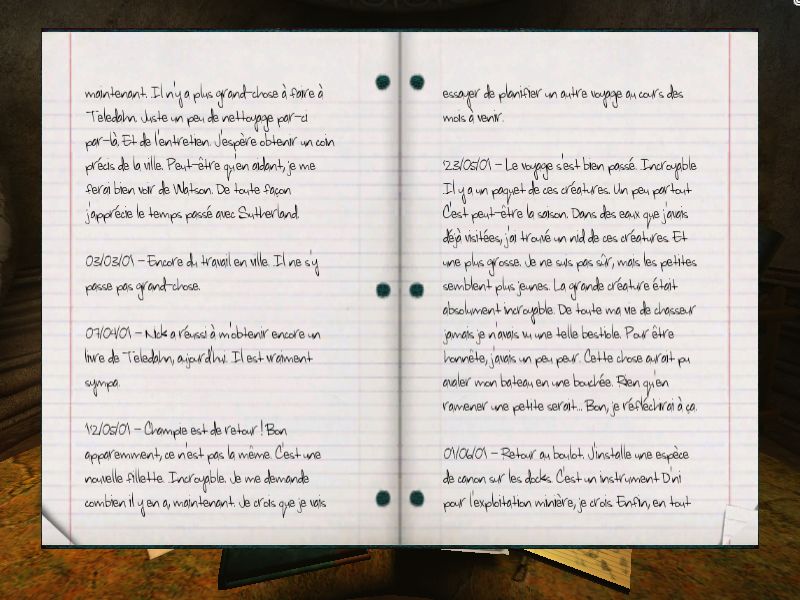 maintenant. Il n'y a plus grand-chose à faire à
Teledahn. Juste un peu de nettoyage par-ci
par-là. Et de l'entretien. J'espère obtenir un coin
précis de la ville. Peut-être qu'en aidant, je me
ferai bien voir de Watson. De toute façon
j'apprécie le temps passé avec Sutherland.
03/03/01 - Encore du travail en ville. Il ne s'y
passe pas grand-chose.
07/04/01 - Nick a réussi à m'obtenir encore un
livre de Teledahn, aujourd'hui. Il est vraiment
sympa.
12/05/01 - Champie est de retour ! Bon
apparemment, ce n'est pas la même. C'est une
nouvelle fillette. Incroyable. Je me demande
combien il y en a, maintenant. Je crois que je vais
essayer de planifier un autre voyage au cours des
mois à venir.
23/05/01 - Le voyage s'est bien passé. Incroyable
Il y a un paquet de ces créatures. Un peu partout
C'est peut-être la saison. Dans des eaux que j'avais
déjà visitées, j'ai trouvé un nid de ces créatures. Et
une plus grosse. Je ne suis pas sûr, mais les petites
semblent plus jeunes. La grande créature était
absolument incroyable. De toute ma vie de chasseur
jamais je n'avais vu une telle bestiole. Pour être
honnête, j'avais un peu peur. Cette chose aurait pu
avaler mon bateau en une bouchée. Rien qu'en
ramener une petite serait... Bon, je réfléchirai à ça.
01/06/01 - Retour au boulot. J'installe une espèce
de canon sur les docks. C'est un instrument D'ni
pour l'exploitation minière, je crois. Enfin, en tout